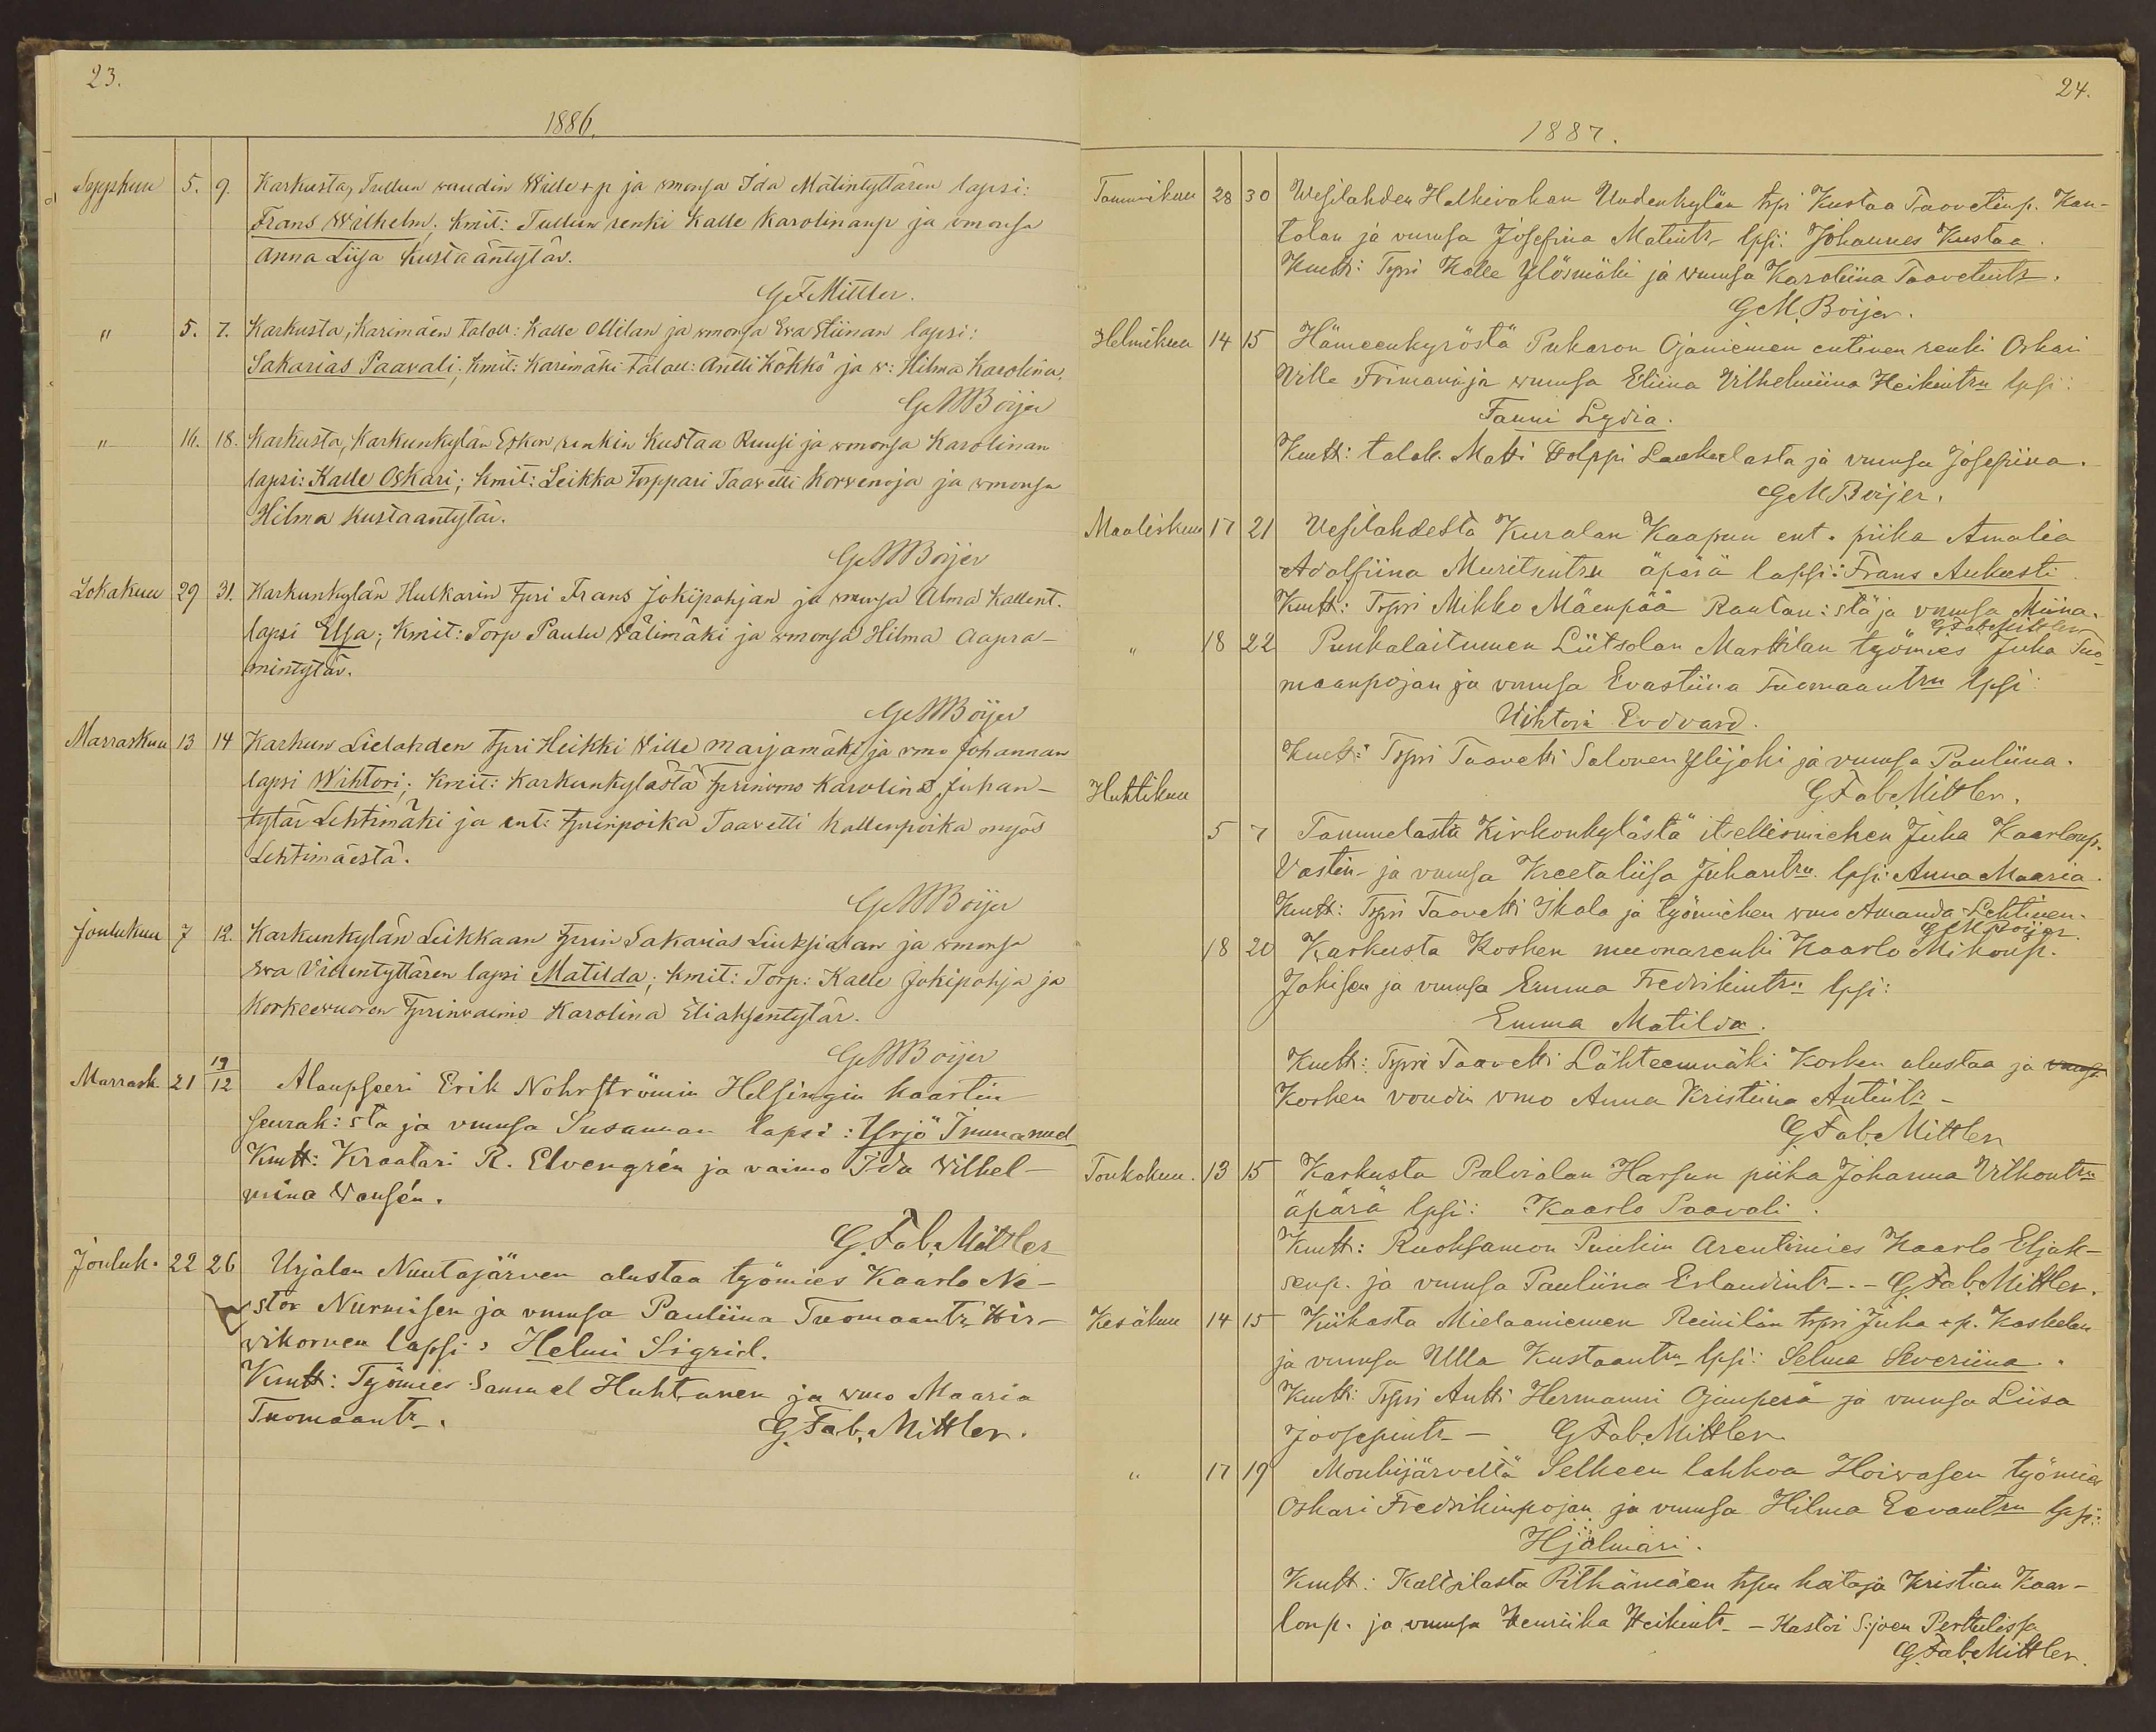 23.
1886.
Syyskuu 5. 9. Karkusta, Tullun voudin Wille + p ja vmonsa Ida Matintyttären lapsi:
Frans Wilhelm; kmit: Tullun renki Kalle Karolinanp ja vmonsa
Anna Liisa Kustaantytär.
G.F. Mittler.
" 5. 7. Karkusta, Karimäen taloll: Kalle Ollilan ja vmonsa Eva Stiinan lapsi:
Sakarias Paavali; kmit: Karimäki taloll: Antti Kökkö ja w: Hilma Karolina.
G M Boijer
" 16. 18. Karkusta, Karkunkylän Eskon renkin Kustaa Ruusi ja vmonsa Karolinan
lapsi: Kalle Oskari; kmit: Leikka Torppari Taavetti Korvenoja ja vmonsa
Hilma Kustaantytär.
G M Boijer
Lokakuu 29 31. Karkunkylän Hulkarin tpri Frans Jokipohjan ja vmonsa Alma Kallent.
lapsi Elsa; kmit: Torp Paulu Välimäki ja vmonsa Hilma Aapra-
mintytär.
G M Boijer
Marraskuu 13 14 Karkun Lielahden tpri Heikki Wille Marjamäki ja vmo Johannan
lapsi Wihtori; kmit: Karkunkylästä tprinvmo Karolina Juhan-
tytär Lehtimäki ja ent: tprinpoika Taavetti Kallenpoika myös
Lehtimäestä.
G M Boijer
Joulukuu 7 12. Karkunkylän Leikkaan tprin Sakarias Liuksialan ja vmonsa
Eva Villentyttären lapsi Matilda; kmit: Torp: Kalle Jokipohja ja
Korkeevuoren tprinvaimo Karolina Eliaksentytär.
G M Boijer
Marrask. 21 19/12 Alaupseeri Erik Nohrströmin Helsingin kaartin
seurak: sta ja vmnsa Susannan lapsi: Yrjö Immanuel
Kmtt: Kraatari R. Elvengrén ja vaimo Ida Wilhel-
mina
G. Fab. Mittler
Jouluk. 22 26 Urjalan Nuutajärven alustaa työmies Kaarlo Ne-
stor Nurmisen ja vmnsa Pauliina Tuomaantr Hir-
vikorven lapsi: Helmi Sigrid.
Kmtt: Työmies Samuel Huhtanen ja vmo Maaria
Tuomaantr.
G. Fab. Mittler.
24.
1887.
Tammikuu 28 30 Vesilahden Halkivahan Uudenkylän trpr Kustaa Taavetinp. Kan-
tolan ja vmnsa Josefina Matintr lpsi: Johannes Kustaa.
Kmtt: Trpri Kalle Ylösmäki ja vmnsa Karoliina Taavetintr.
G M Boijer.
Helmikuu 14 15 Hämeenkyröstä Pukaron Ojaniemen entinen renki Oskari
Ville Frimanin ja vmnsa Eliina Vilhelmiina Heikintrn lpsi:
Fanni Lydia.
Kmtt: talok. Matti Holppi Laukulasta ja vmnsa Josefiina.
G M Boijer.
Maaliskuu 17 21 Vesilahdesta Kuralan Kaapun ent. piika Amalia
Adolfiina Muritsintrn äpärä lapsi: Frans Aukusti
Kmtt: Trpri Mikko Mäenpää Rautan: stä ja vmnsa Miina.
G. Fab. Mittler
" 18 22 Punkalaitumen Liitsolan Marttilan työmies Juha Tuo-
maanpojan ja vmnsa Evastiina Tuomaantrn lpsi:
Vihtori Edvard.
Kmtt: Trpri Taavetti Salonen Ylijoki ja vmnsa Pauliina.
G. Fab. Mittler.
Huhtikuu
5 7 Tammelasta Kirkonkylästä itsellismiehen Juha Kaarlonp.
Vastin- ja vmnsa Kreetaliisa Juhantrn lpsi: Anna Maaria.
Kmtt: Trpri Taavetti Ikala ja työmiehen vmo Amanda Lehtinen.
G M Boijer.
18 20 Karkusta Kosken muonarenki Kaarlo Mikonp.
Jokisen ja vmnsa Emma Fredrikintrn lpsi:
Emma Matilda.
Kmtt: Trpri Taavetti Lähteenmäki Kosken alustaa ja vmnsa
Kosken voudin vmo Anna Kristiina Antintr -
G. Fab. Mittler
Toukokuu. 13 15 Karkusta Palvialan Harsun piika Johanna Vilhontrn
äpärä lpsi: Kaarlo Paavali.
Kmtt: Ruoksamon Punkin Arentimies Kaarlo Eljak-
senp. ja vmnsa Pauliina Erlandintr. - G. Fab. Mittler.
Kesäkuu 14 15 Kiikasta Mielaaniemen Reinilän trpri Juha + p. Koskelan
ja vmnsa Ulla Kustaantrn lpsi: Selma Severiina.
Kmtt: Trpri Antti Hermanni Ojanperä ja vmnsa Liisa
Joosepintr - G. Fab. Mittler.
" 17 19 Mouhijärveltä Selkeen lahkoa Hoivasen työmies
Oskari Fredrikinpojan ja vmnsa Hilma Eevantrn lpsi:
Hjalmari.
Kmtt: Kaltsilasta Pitkämäen trpn haltaja Kristian Kaar-
lonp. ja vmnsa Henriika Heikintr. - Kastoi S:joen Perttulissa
G. Fab. Mittler.